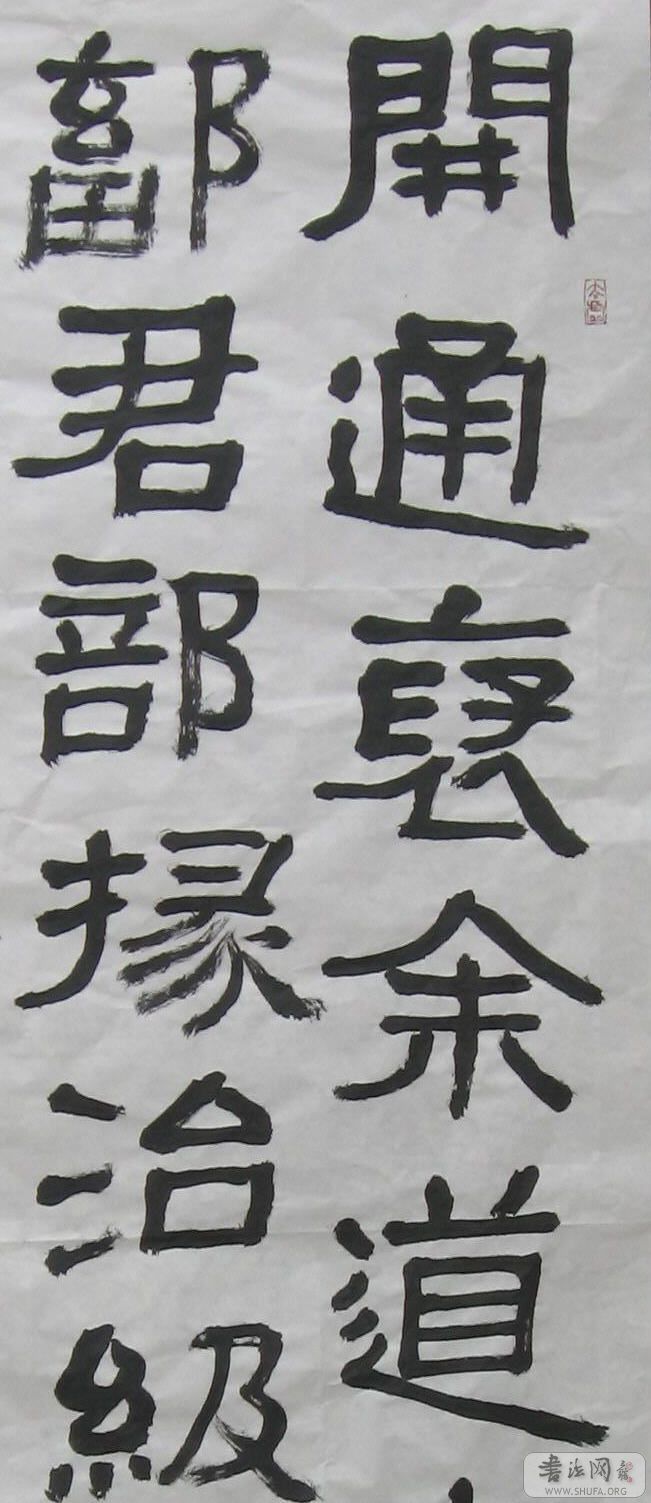 開通褒余道
鄐君部掾治級
書法网
WWW.SHUFA.ORG